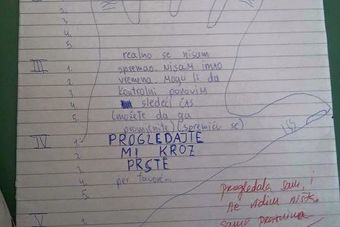 2.
3.
4.
5.
realno se nisam
III 1. spremao. Nisam imao
2. vremena. Mogu li da
3. kontrolni ponovim
4. sledeći čas
5. (možete da ga
promenite) (spremiću se)
IV 1. PROGLEDAJTE
2. MI KROZ
3. PRSTE
4. per favore..
5.
progledala sam, i
ne vidim ništa
samo praznina
V 1.